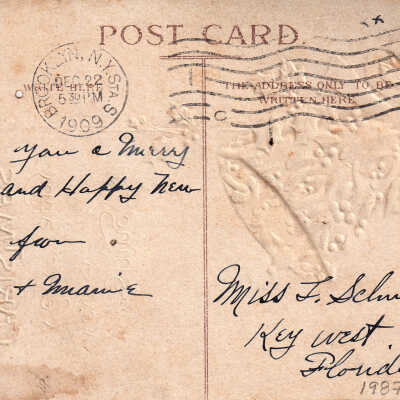 POST CARD
BROOKLYN, N.Y. STA. S
DEC 22
5 30 PM
1909
WRITE HERE
THE ADDRESS ONLY TO BE
WRITTEN HERE
you a Merry
and Happy New
from
+ Mamie
Miss F. Schu
Key West
Florid
1987